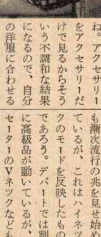 ね。アクセサリー
をアクセサリーだ
けで見るからそう
いう不調和な結果
になるので、自分
の洋服に合わせる
も漸次流行の兆を見せ始め
ているが、これはハイネッ
クのモードを反映したもの
であろう。デパートでは割
に高級品が動いているが、
セーターのVネックなども